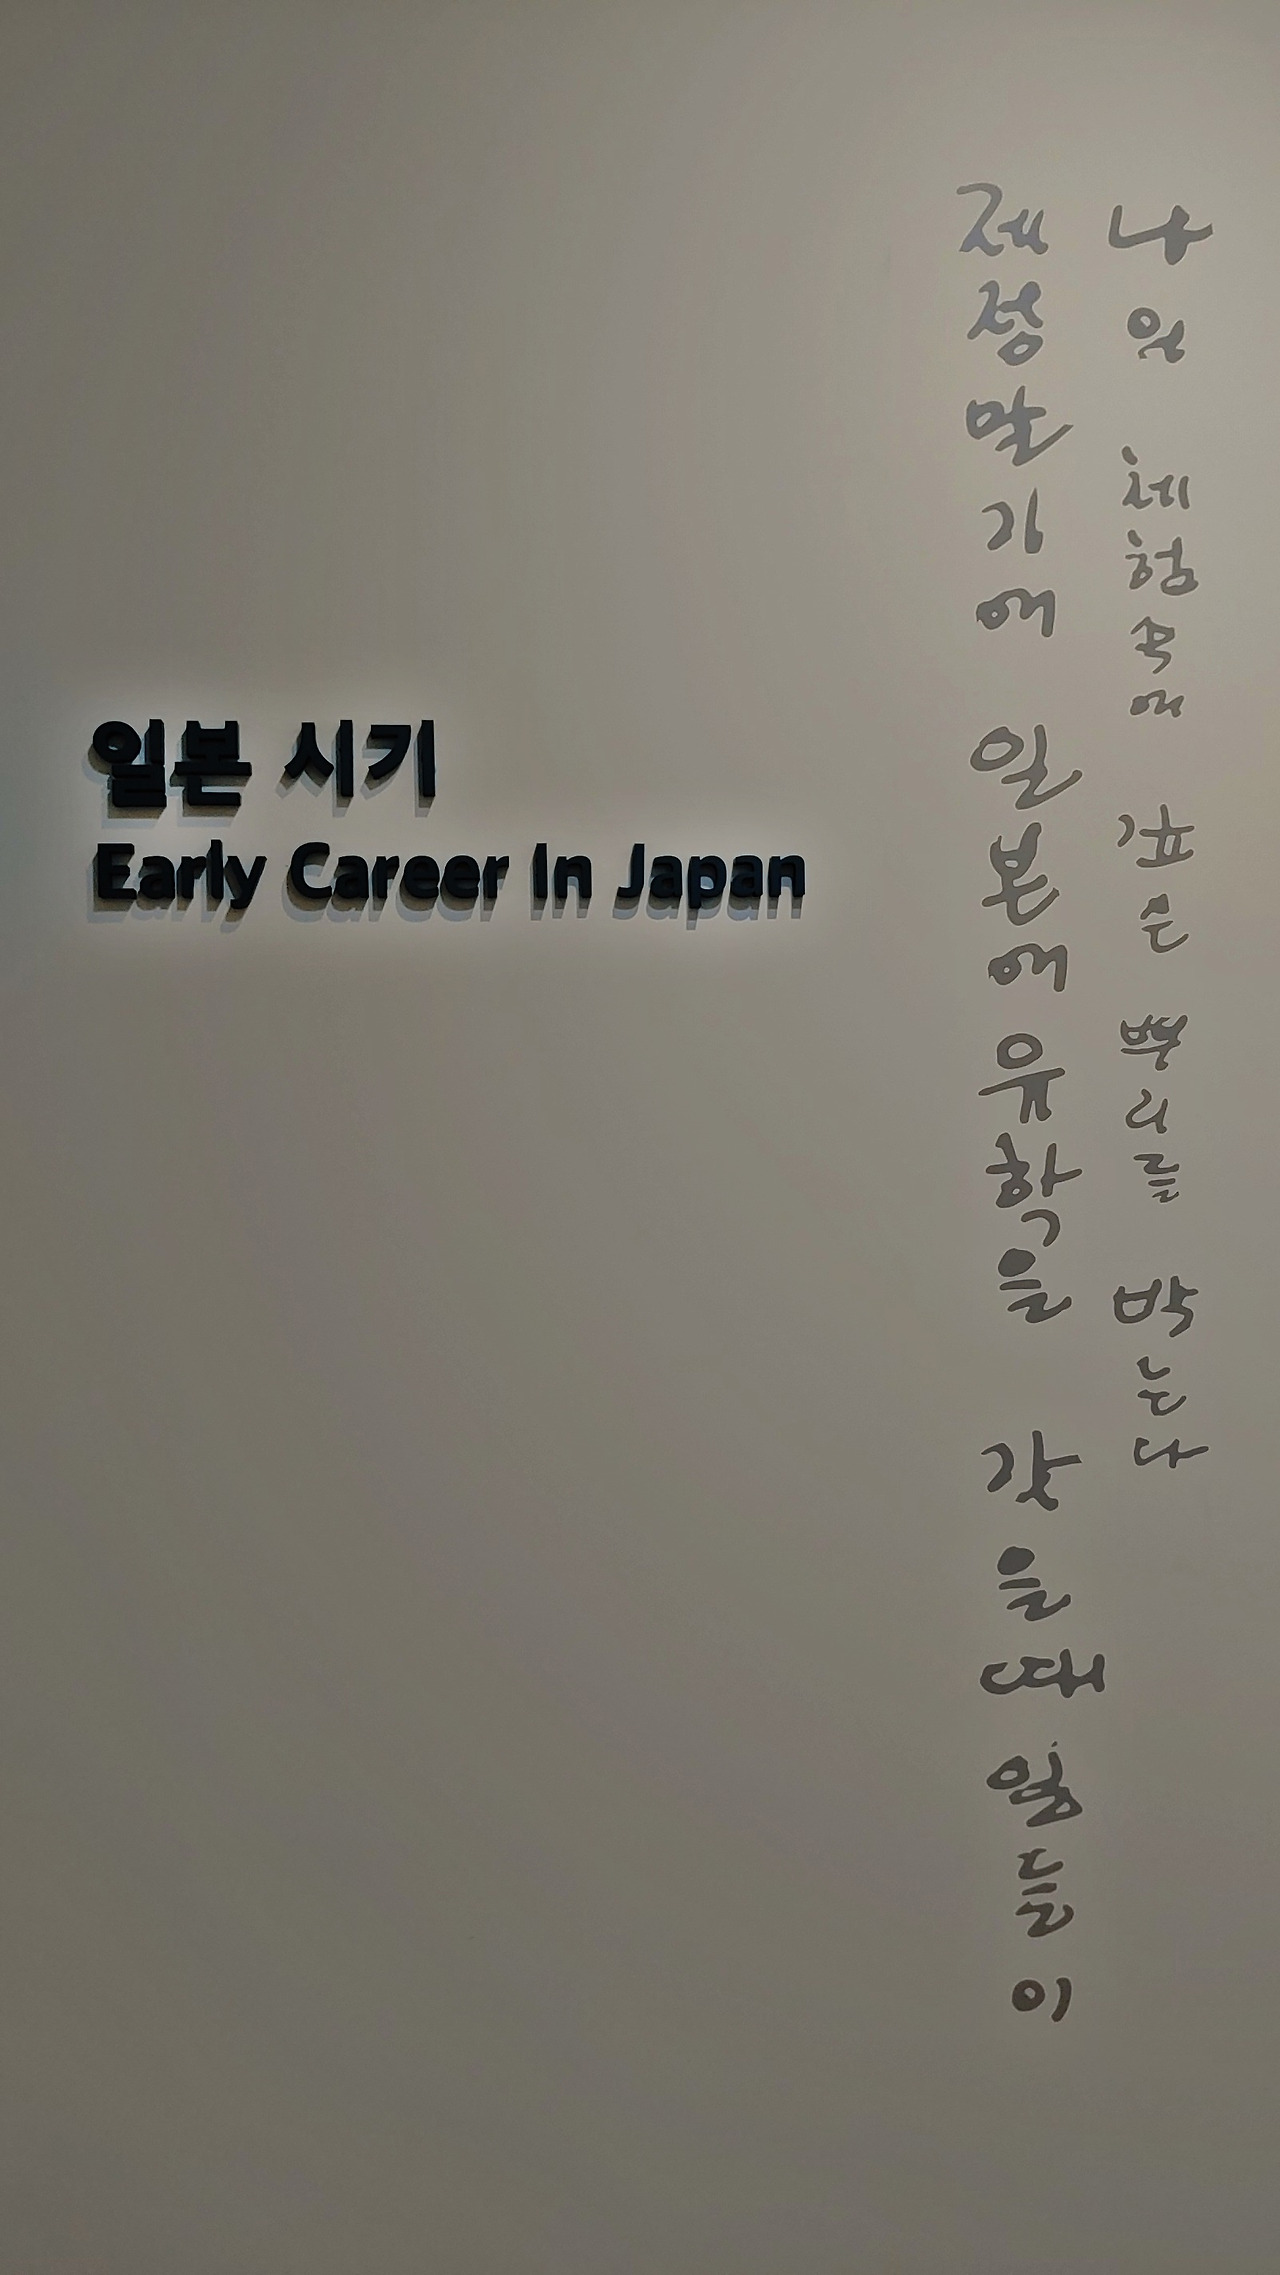 일본 시기
Early Career In Japan
제정말기에 일본에 유학을 갓을때
나의 체험속에 깊은 뿌리를 박는다